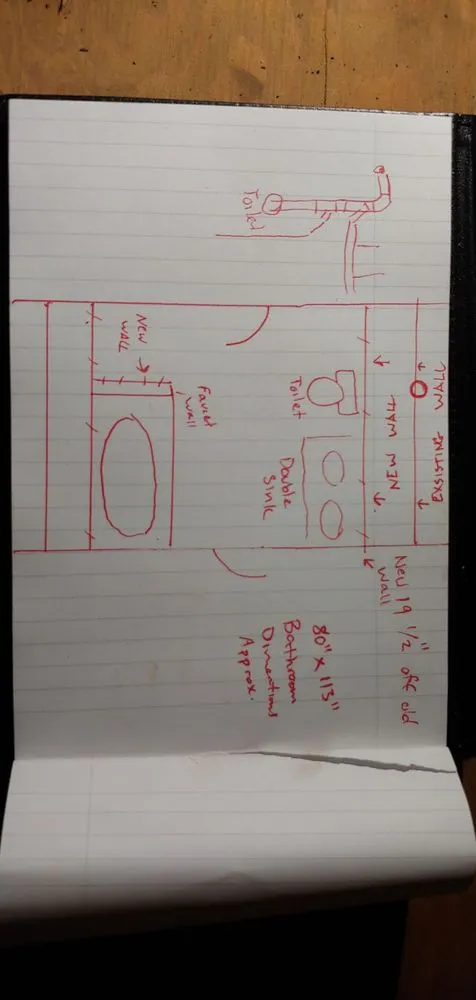 Toilet
EXSISTING WALL
NEW WALL
NEW
WALL
Toilet
Faucet
wall
Double
Sink
New 19 1/2" off old
Wall
80" x 113"
Bathroom
Dimentions
Approx.